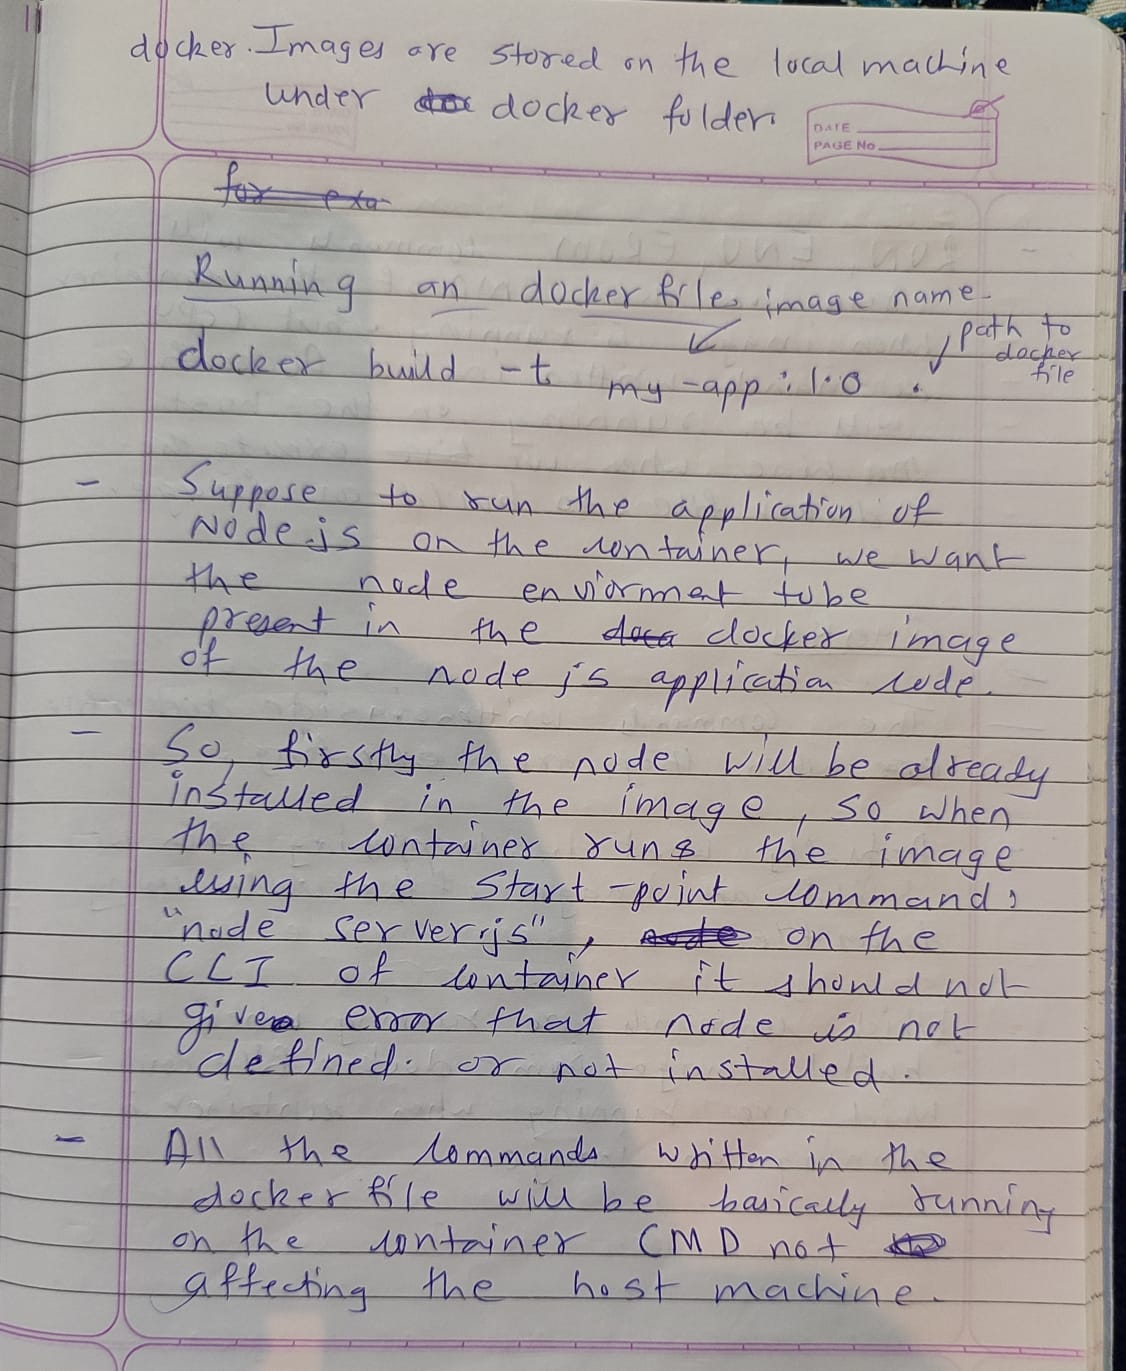 docker. Images are stored on the local machine
under docker folder.
DATE
PAGE No
Running an docker file. image name.
path to
docker
file
docker build -t my-app:1.0 .
- Suppose to run the application of
Node.js on the container, we want
the node enviorment to be
present in the docker image
of the node js application code.
- So, firstly the node will be already
installed in the image, so when
the container runs the image
using the start-point command:
"node server.js", on the
CLI of container it should not
give error that node is not
defined. or not installed.
- All the commands written in the
docker file will be basically running
on the container CMD not
affecting the host machine.